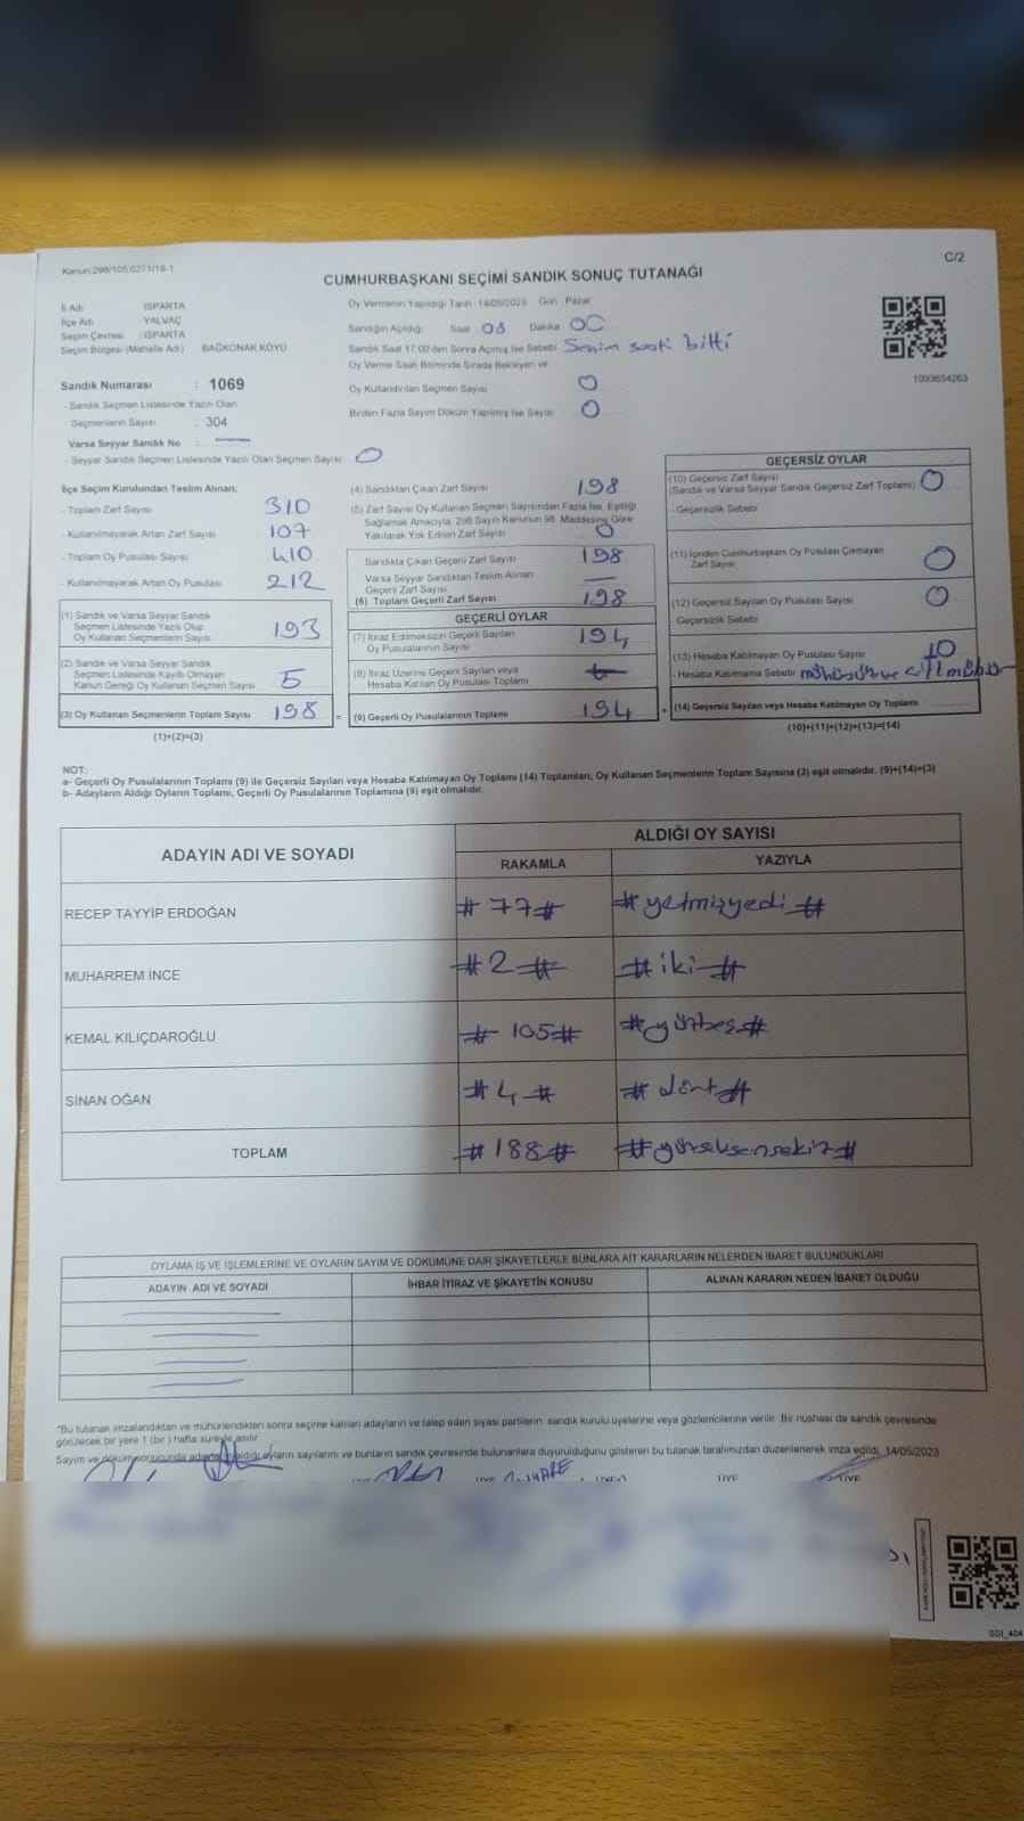 Kanun:298/105,6271/18-1
C/2
CUMHURBAŞKANI SEÇİMİ SANDIK SONUÇ TUTANAĞI
İl Adı: ISPARTA
İlçe Adı: YALVAÇ
Seçim Çevresi: ISPARTA
Seçim Bölgesi (Mahalle Adı) BAĞKONAK KÖYÜ
Oy Vermenin Yapıldığı Tarih: 14/05/2023 Gün: Pazar
Sandığın Açıldığı: Saat: 08 Dakika:
Sandık Saat 17:00'den Sonra Açılmış İse Sebebi: Seçim saati bitti
Oy Verme Saati Bitiminde Sırada Bekleyen ve
Oy Kullandırılan Seçmen Sayısı 0
Birden Fazla Sayım Döküm Yapılmış İse Sayısı 0
Sandık Numarası : 1069
- Sandık Seçmen Listesinde Yazılı Olan
- Seçmenlerin Sayısı : 304
Varsa Seyyar Sandık No :
- Seyyar Sandık Seçmen Listesinde Yazılı Olan Seçmen Sayısı 0
İlçe Seçim Kurulundan Teslim Alınan;
- Toplam Zarf Sayısı 310
- Kullanılmayarak Artan Zarf Sayısı 107
- Toplam Oy Pusulası Sayısı 410
- Kullanılmayarak Artan Oy Pusulası 212
(1) Sandık ve Varsa Seyyar Sandık
Seçmen Listesinde Yazılı Olup
Oy Kullanan Seçmenlerin Sayısı 193
(2) Sandık ve Varsa Seyyar Sandık
Seçmen Listesinde Kayıtlı Olmayan
Kanun Gereği Oy Kullanan Seçmen Sayısı 5
(3) Oy Kullanan Seçmenlerin Toplam Sayısı 198
(1)+(2)=(3)
(4) Sandıktan Çıkan Zarf Sayısı 198
(5) Zarf Sayısı Oy Kullanan Seçmen Sayısından Fazla İse, Eşitliği
Sağlamak Amacıyla, 298 Sayılı Kanunun 98. Maddesine Göre
Yakılarak Yok Edilen Zarf Sayısı 0
Sandıkta Çıkan Geçerli Zarf Sayısı 198
Varsa Seyyar Sandıktan Teslim Alınan
Geçerli Zarf Sayısı
(6) Toplam Geçerli Zarf Sayısı 198
GEÇERLİ OYLAR
(7) İtiraz Edilmeksizin Geçerli Sayılan
Oy Pusulalarının Sayısı 194
(8) İtiraz Üzerine Geçerli Sayılan veya
Hesaba Katılan Oy Pusulası Toplamı
= (9) Geçerli Oy Pusulalarının Toplamı 194
GEÇERSİZ OYLAR
(10) Geçersiz Zarf Sayısı
(Sandık ve Varsa Seyyar Sandık Geçersiz Zarf Toplamı) 0
- Geçersizlik Sebebi
(11) İçinden Cumhurbaşkanı Oy Pusulası Çıkmayan
Zarf Sayısı 0
(12) Geçersiz Sayılan Oy Pusulası Sayısı 0
Geçersizlik Sebebi
(13) Hesaba Katılmayan Oy Pusulası Sayısı 10
- Hesaba Katılmama Sebebi
+ (14) Geçersiz Sayılan veya Hesaba Katılmayan Oy Toplamı
(10)+(11)+(12)+(13)=(14)
NOT:
a- Geçerli Oy Pusulalarının Toplamı (9) ile Geçersiz Sayılan veya Hesaba Katılmayan Oy Toplamı (14) Toplamları, Oy Kullanan Seçmenlerin Toplam Sayısına (3) eşit olmalıdır. (9)+(14)=(3)
b- Adayların Aldığı Oyların Toplamı, Geçerli Oy Pusulalarının Toplamına (9) eşit olmalıdır.
ADAYIN ADI VE SOYADI
ALDIĞI OY SAYISI
RAKAMLA YAZIYLA
RECEP TAYYİP ERDOĞAN #77# #yetmişyedi#
MUHARREM İNCE #2# #iki#
KEMAL KILIÇDAROĞLU #105# #yüzbeş#
SİNAN OĞAN #4# #dört#
TOPLAM #188# #yüzseksensekiz#
OYLAMA İŞ VE İŞLEMLERİNE VE OYLARIN SAYIM VE DÖKÜMÜNE DAİR ŞİKAYETLERLE BUNLARA AİT KARARLARIN NELERDEN İBARET BULUNDUKLARI
ADAYIN ADI VE SOYADI İHBAR İTİRAZ VE ŞİKAYETİN KONUSU ALINAN KARARIN NEDEN İBARET OLDUĞU
"Bu tutanak imzalandıktan ve mühürlendikten sonra seçime katılan adayların ve talep eden siyasi partilerin sandık kurulu üyelerine veya gözlemcilerine verilir. Bir nüshası da sandık çevresinde
görülecek bir yere 1 (bir) hafta süreyle asılır.
Sayım ve döküm sonucunda adayların aldığı oyların sayılarını ve bunların sandık çevresinde bulunanlara duyurulduğunu gösteren bu tutanak tarafımızdan düzenlenerek imza edildi. 14/05/2023
ÜYE ÜYE